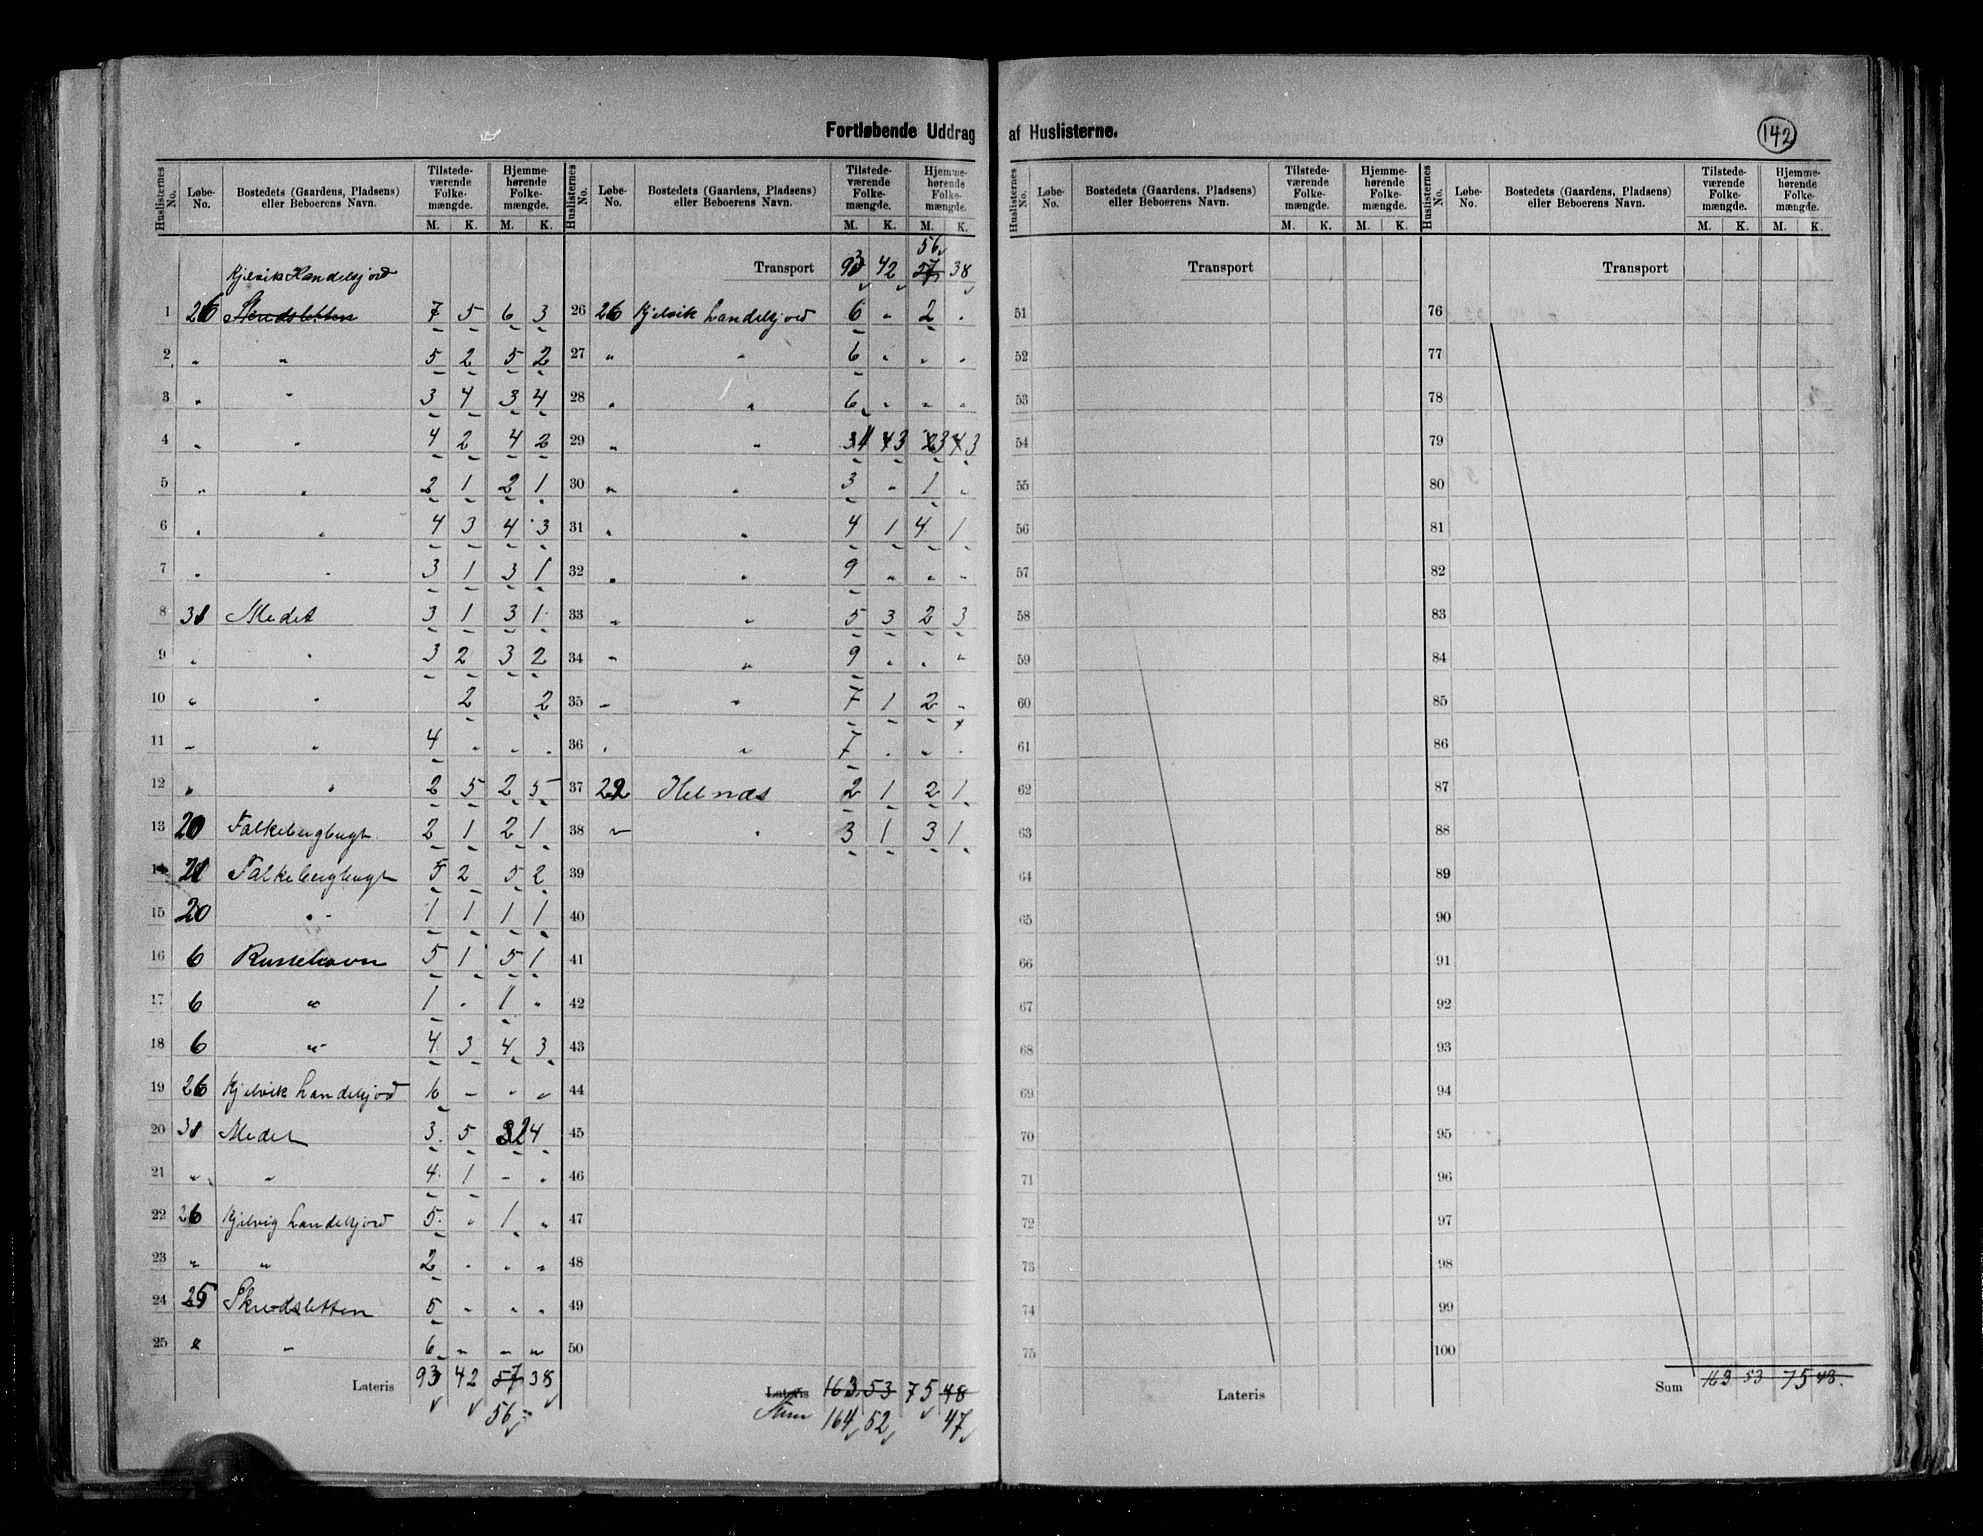 Fortløbende Uddrag af Huslisterne.
142
Huslisternes No. | Løbe-No. | Bostedets (Gaardens, Pladsens) eller Beboerens Navn. | Tilstedeværende Folkemængde. M. K. | Hjemmehørende Folkemængde. M. K.
Kjelvik Handelsjord
1 26 Skrudsletten 7 5 6 3
2 " " 5 2 5 2
3 " " 3 4 3 4
4 " " 4 2 4 2
5 " " 2 1 2 1
6 " " 4 3 4 3
7 " " 3 1 3 1
8 31 Medet 3 1 3 1
9 " " 3 2 3 2
10 " " 2 2
11 " " 4 " " "
12 " " 2 5 2 5
13 20 Falkebergbugt 2 1 2 1
14 21 Falkebergbugt 5 2 5 2
15 20 " 1 1 1 1
16 6 Russehavn 5 1 5 1
17 6 " 1 " 1 "
18 6 " 4 3 4 3
19 26 Kjelvik Handelsjord 6 " " "
20 31 Medet 3 5 2 4
21 " " 4 1 " "
22 26 Kjelvig Handelsjord 5 " 1 "
23 " " 2 " " "
24 25 Skrudsletten 5 " " "
25 " " 6 " " "
Lateris 93 42 57 38
56
Huslisternes No. | Løbe-No. | Bostedets (Gaardens, Pladsens) eller Beboerens Navn. | Tilstedeværende Folkemængde. M. K. | Hjemmehørende Folkemængde. M. K.
56
Transport 93 42 57 38
26 26 Kjelvik Handelsjord 6 " 2 "
27 " " 6 " " "
28 " " 6 " " "
29 " " 4 3 3 3
30 " " 3 " 1 "
31 " " 4 1 4 1
32 " " 9 " " "
33 " " 5 3 2 3
34 " " 9 " " "
35 " " 7 1 2 "
36 " " 7 " " "
37 22 Helnæs 2 1 2 1
38 " " 3 1 3 1
39
40
41
42
43
44
45
46
47
48
49
50
Lateris 163 53 75 48
Sum 164 52 47
Huslisternes No. | Løbe-No. | Bostedets (Gaardens, Pladsens) eller Beboerens Navn. | Tilstedeværende Folkemængde. M. K. | Hjemmehørende Folkemængde. M. K.
Transport
51
52
53
54
55
56
57
58
59
60
61
62
63
64
65
66
67
68
69
70
71
72
73
74
75
Lateris
Huslisternes No. | Løbe-No. | Bostedets (Gaardens, Pladsens) eller Beboerens Navn. | Tilstedeværende Folkemængde. M. K. | Hjemmehørende Folkemængde. M. K.
Transport
76
77
78
79
80
81
82
83
84
85
86
87
88
89
90
91
92
93
94
95
96
97
98
99
100
Sum 163 53 75 48.